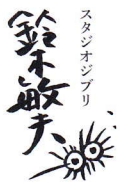 スタジオジブリ
鈴木敏夫